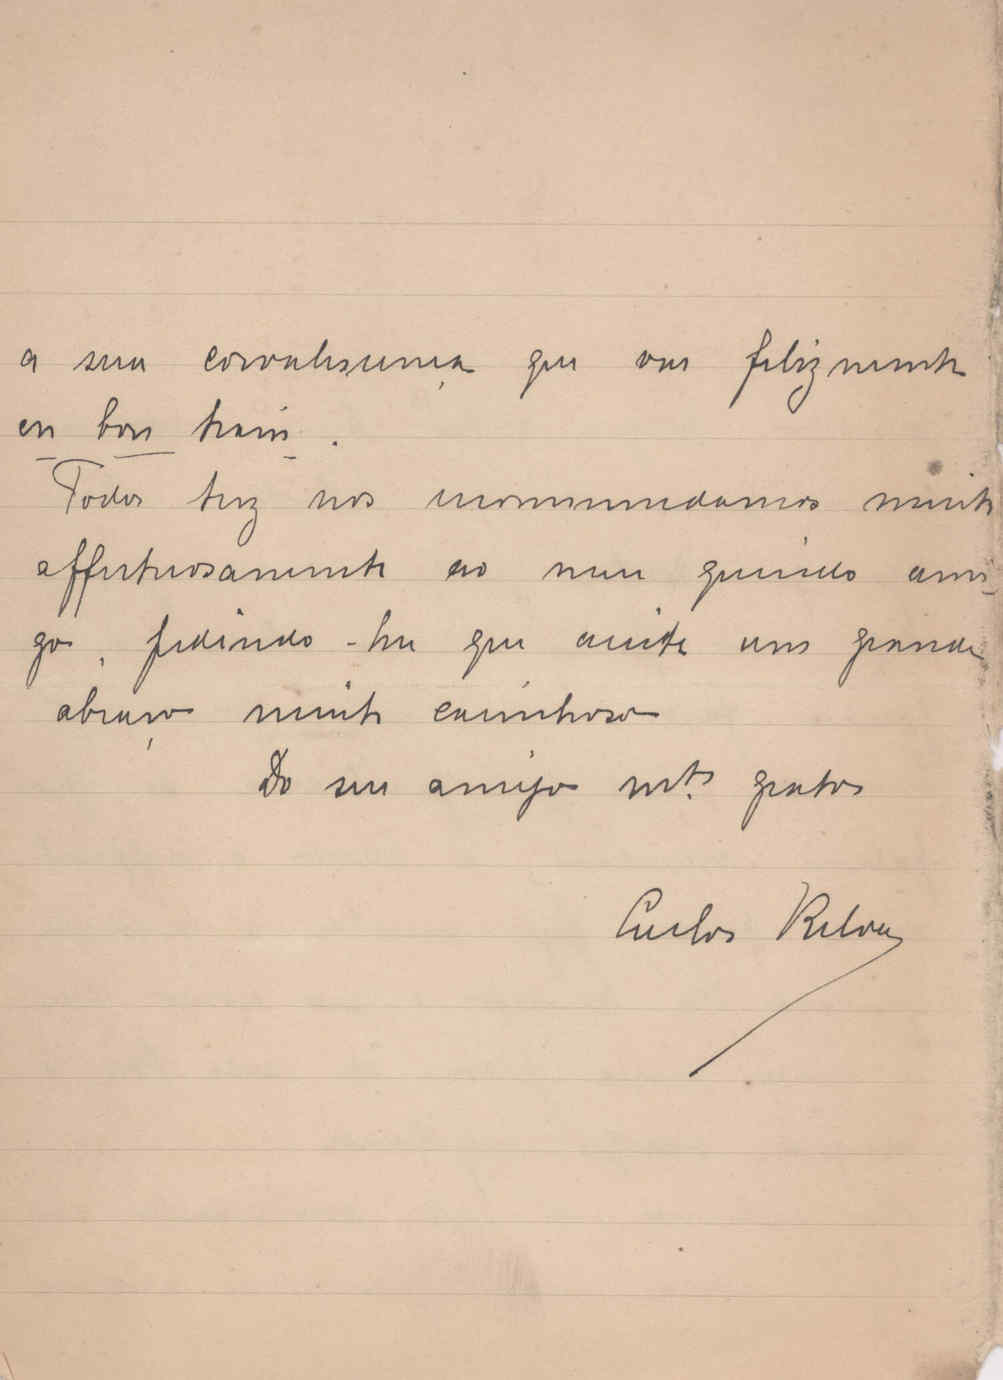 a sua convalescença que vae felizmente
en bon train.
Todos trez nos recommendamos muito
affectuosamente ao meu querido ami-
go, pedindo-lhe que aceite um grande
abraço muito carinhoso
Do seu amigo mto. grato
Carlos Relvas